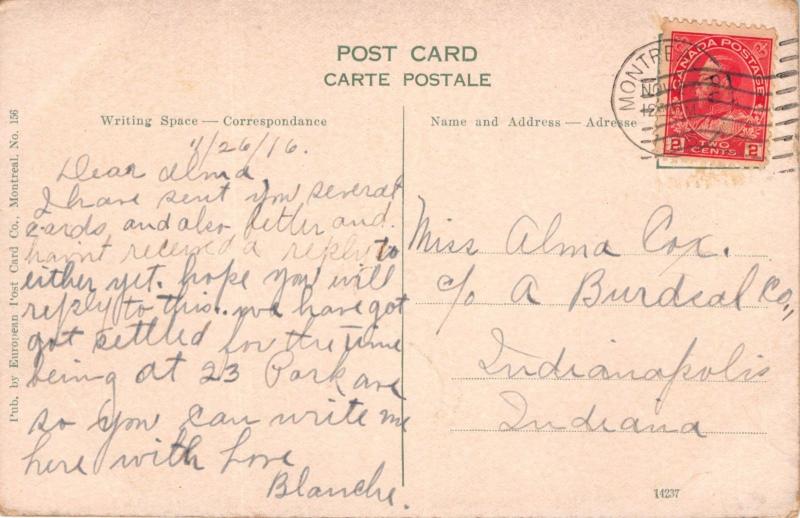 POST CARD
CARTE POSTALE
Writing Space — Correspondance
Name and Address — Adresse
MONTRE
NOV
CANADA POSTAGE
2 TWO CENTS 2
Pub. by European Post Card Co., Montreal. No. 156
1/26/16.
Dear Alma,
I have sent you several
cards, and also letter and
hav'nt received a reply to
either yet. hope you will
reply to this.. we have got
got settled for the time
being at 23 Park ave
so you can write me
here with Love
Blanche.
Miss Alma Cox.
c/o A Burdsal Co.,
Indianapolis
Indiana
14237